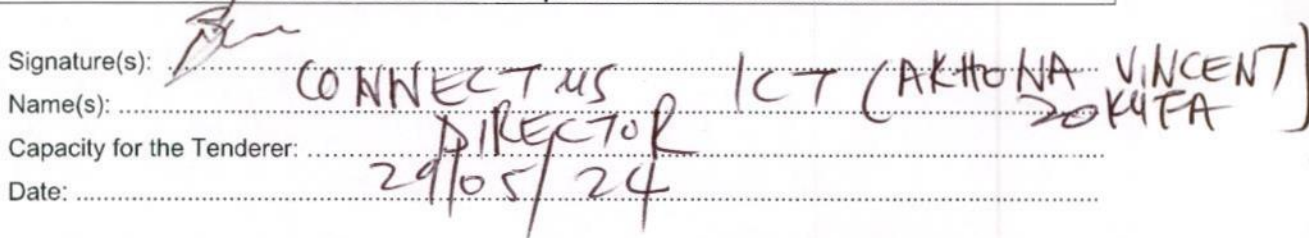 Signature(s):
Name(s): CONNECT US ICT (AKHONA VINCENT
ZOKUFA)
Capacity for the Tenderer: DIRECTOR
Date: 29/05/24